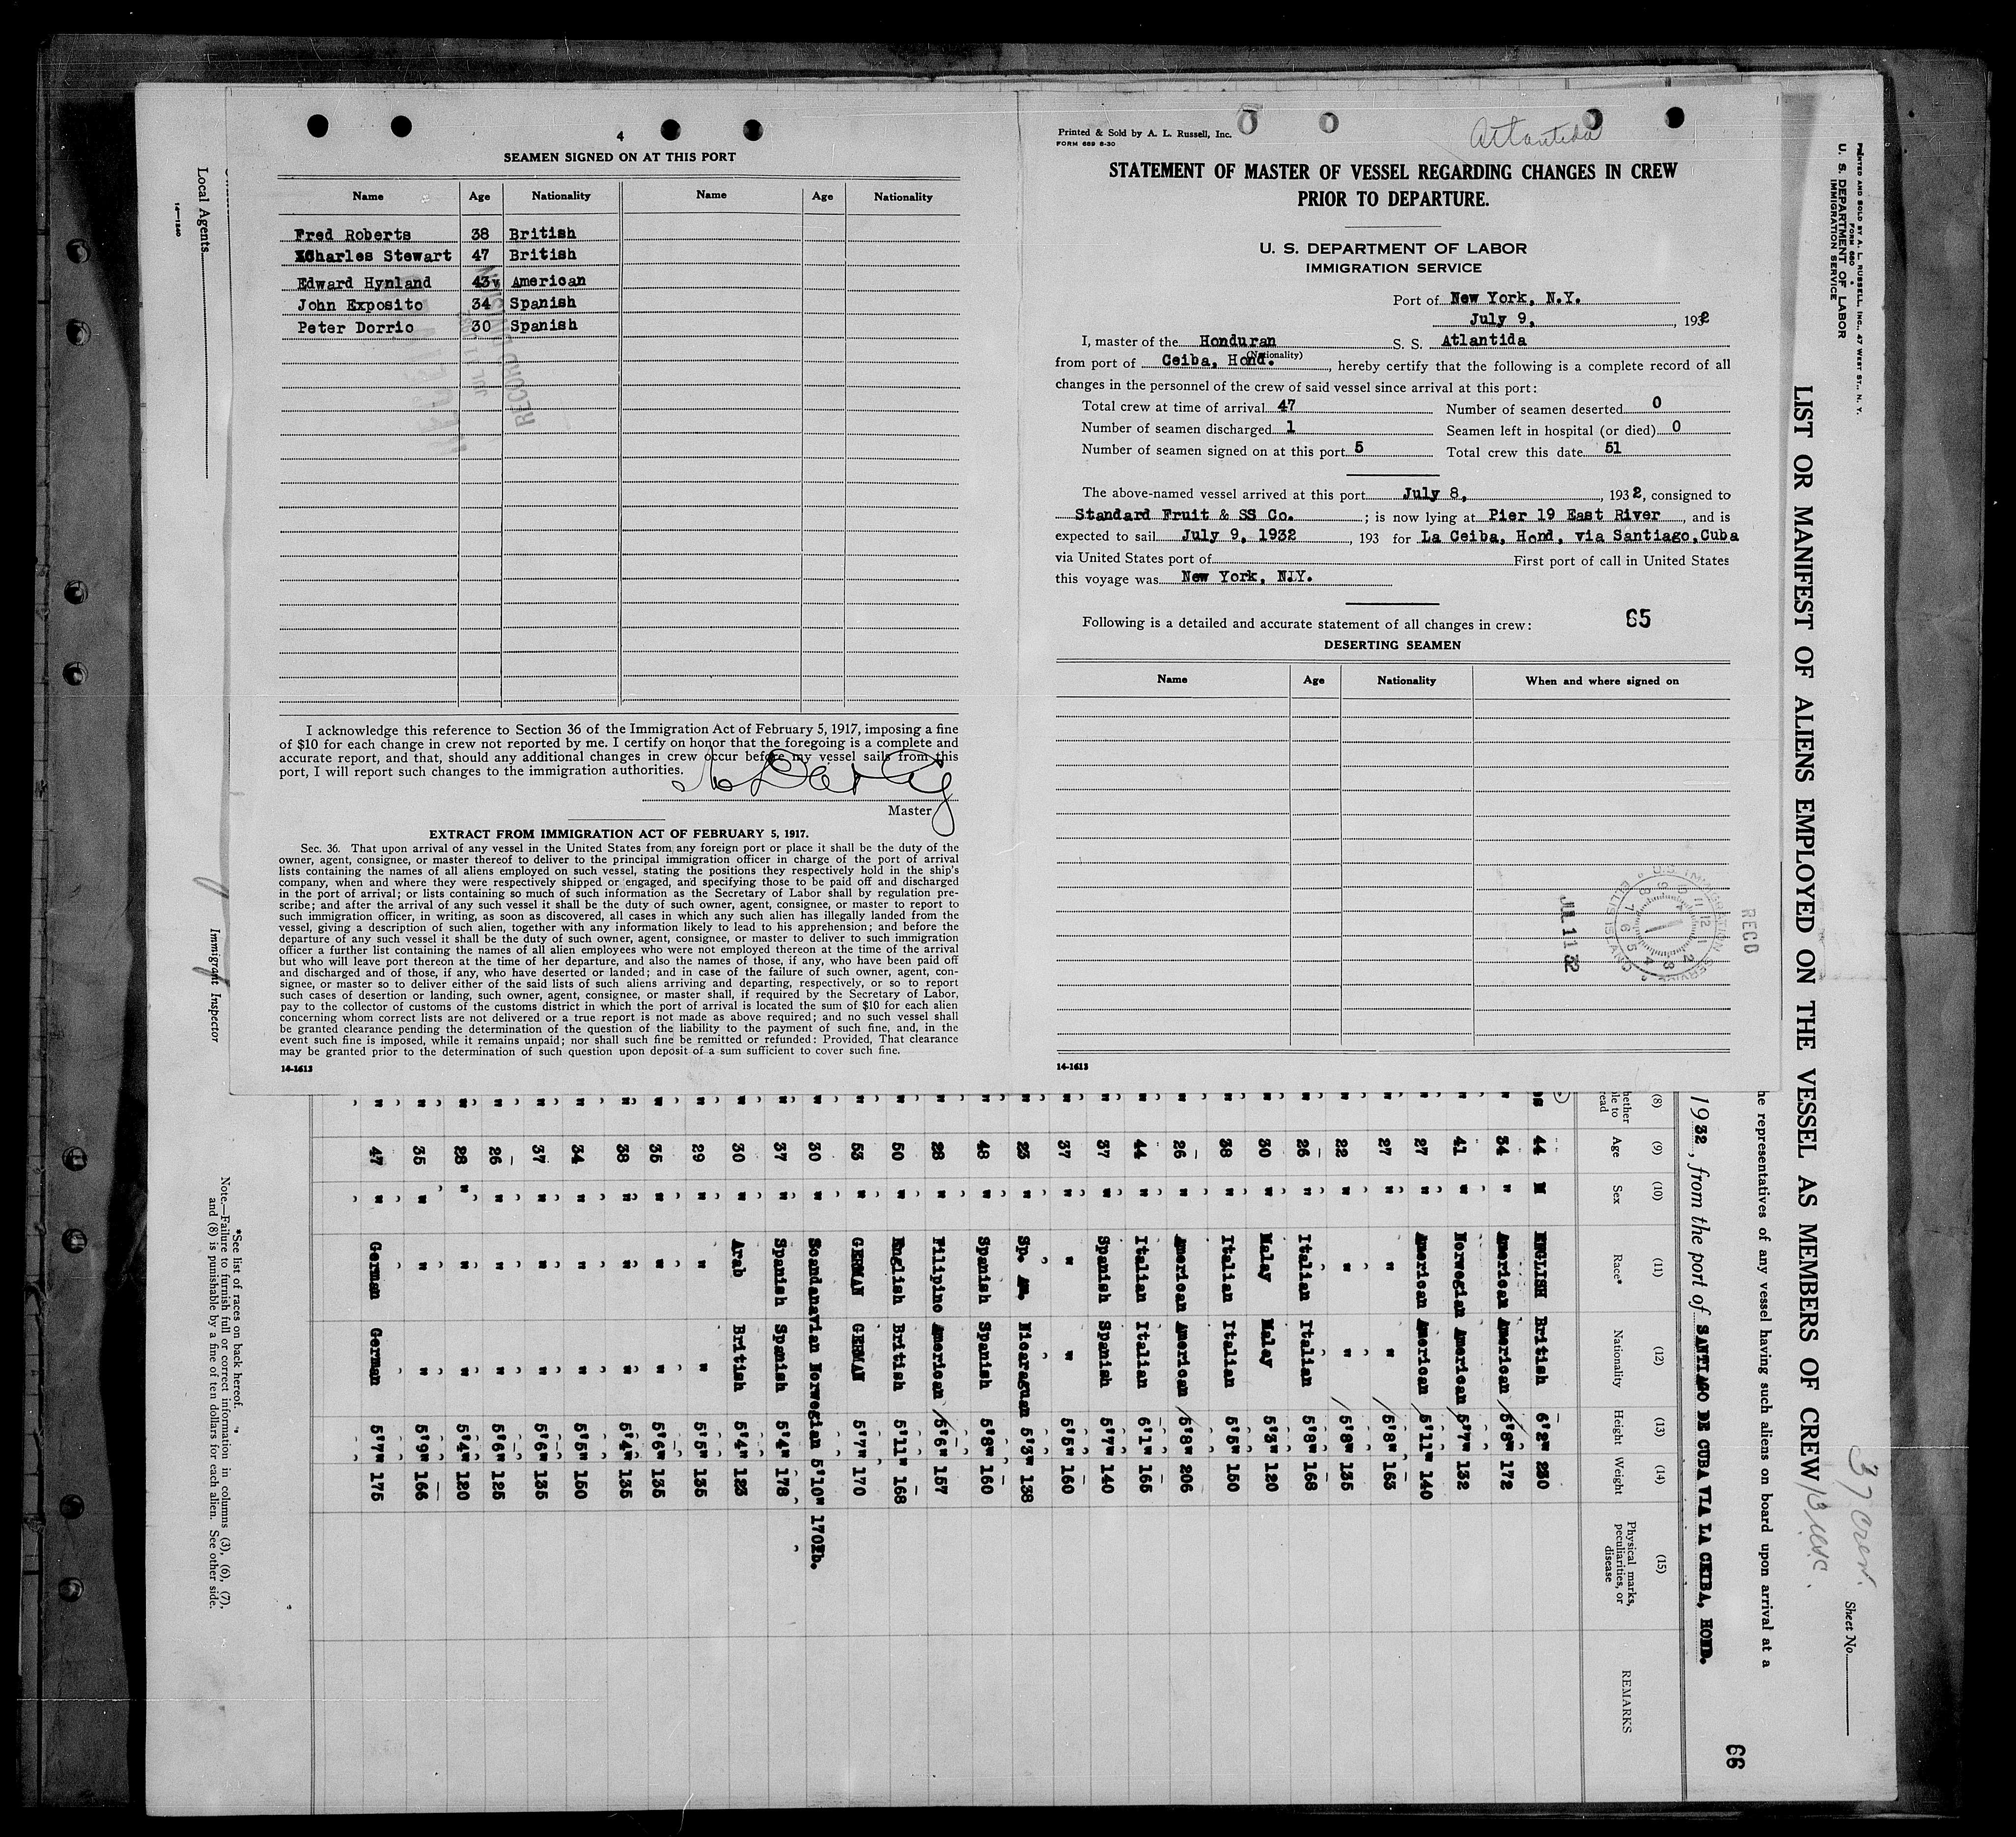 4
SEAMEN SIGNED ON AT THIS PORT
Name Age Nationality Name Age Nationality
Fred Roberts 38 British
Charles Stewart 47 British
Edward Hynland 43 American
John Exposito 34 Spanish
Peter Dorrio 30 Spanish
JUL 11
RECORD DIVISION
I acknowledge this reference to Section 36 of the Immigration Act of February 5, 1917, imposing a fine
of $10 for each change in crew not reported by me. I certify on honor that the foregoing is a complete and
accurate report, and that, should any additional changes in crew occur before my vessel sails from this
port, I will report such changes to the immigration authorities.
Master
EXTRACT FROM IMMIGRATION ACT OF FEBRUARY 5, 1917.
Sec. 36. That upon arrival of any vessel in the United States from any foreign port or place it shall be the duty of the
owner, agent, consignee, or master thereof to deliver to the principal immigration officer in charge of the port of arrival
lists containing the names of all aliens employed on such vessel, stating the positions they respectively hold in the ship's
company, when and where they were respectively shipped or engaged, and specifying those to be paid off and discharged
in the port of arrival; or lists containing so much of such information as the Secretary of Labor shall by regulation pre-
scribe; and after the arrival of any such vessel it shall be the duty of such owner, agent, consignee, or master to report to
such immigration officer, in writing, as soon as discovered, all cases in which any such alien has illegally landed from the
vessel, giving a description of such alien, together with any information likely to lead to his apprehension; and before the
departure of any such vessel it shall be the duty of such owner, agent, consignee, or master to deliver to such immigration
officer a further list containing the names of all alien employees who were not employed thereon at the time of the arrival
but who will leave port thereon at the time of her departure, and also the names of those, if any, who have been paid off
and discharged and of those, if any, who have deserted or landed; and in case of the failure of such owner, agent, con-
signee, or master so to deliver either of the said lists of such aliens arriving and departing, respectively, or so to report
such cases of desertion or landing, such owner, agent, consignee, or master shall, if required by the Secretary of Labor,
pay to the collector of customs of the customs district in which the port of arrival is located the sum of $10 for each alien
concerning whom correct lists are not delivered or a true report is not made as above required; and no such vessel shall
be granted clearance pending the determination of the question of the liability to the payment of such fine, and, in the
event such fine is imposed, while it remains unpaid; nor shall such fine be remitted or refunded: Provided, That clearance
may be granted prior to the determination of such question upon deposit of a sum sufficient to cover such fine.
14-1613
Printed & Sold by A. L. Russell, Inc.
FORM 689 8-30
Atlantida
STATEMENT OF MASTER OF VESSEL REGARDING CHANGES IN CREW
PRIOR TO DEPARTURE.
U. S. DEPARTMENT OF LABOR
IMMIGRATION SERVICE
Port of New York, N.Y.
July 9, 1932
I, master of the Honduran S. S. Atlantida
(Nationality)
from port of Ceiba, Hond. , hereby certify that the following is a complete record of all
changes in the personnel of the crew of said vessel since arrival at this port:
Total crew at time of arrival 47 Number of seamen deserted 0
Number of seamen discharged 1 Seamen left in hospital (or died) 0
Number of seamen signed on at this port 5 Total crew this date 51
The above-named vessel arrived at this port July 8, , 1932, consigned to
Standard Fruit & SS Co. ; is now lying at Pier 19 East River , and is
expected to sail July 9, 1932 , 193 for La Ceiba, Hond. via Santiago,Cuba
via United States port of First port of call in United States
this voyage was New York, N.Y.
Following is a detailed and accurate statement of all changes in crew: 65
DESERTING SEAMEN
Name Age Nationality When and where signed on
U.S. IMMIGRATION SERVICE ELLIS ISLAND
RECD
JUL 11 32
14-1613
PRINTED AND SOLD BY A. L. RUSSELL, INC., 47 WEST ST., N. Y.
FORM 680
U. S. DEPARTMENT OF LABOR
IMMIGRATION SERVICE
LIST OR MANIFEST OF ALIENS EMPLOYED ON THE VESSEL AS MEMBERS OF CREW
37 crew.
Sheet No.
he representatives of any vessel having such aliens on board upon arrival at a
1932, from the port of SANTIAGO DE CUBA VIA LA CEIBA, HOND.
66
(8) (9) (10) (11) (12) (13) (14) (15)
hether le to read Age Sex Race* Nationality Height Weight Physical marks, peculiarities, or disease REMARKS
44 M ENGLISH British 6'2" 230
" 34 " American American 5'8" 172
" 41 " Norwegian American 5'7" 132
" 27 " American American 5'11" 140
" 27 " " " 5'8" 163
" 22 " " " 5'8" 135
" 26 " Italian Italian 5'8" 168
" 30 " Malay Malay 5'3" 120
" 38 " Italian Italian 5'5" 150
" 26 " American American 5'8" 206
" 44 " Italian Italian 6'1" 165
" 37 " Spanish Spanish 5'7" 140
" 37 " " " 5'5" 160
" 23 " Sp. Am. Nicaraguan 5'3" 138
" 48 " Spanish Spanish 5'8" 160
" 28 " Filipino American 5'6" 157
" 50 " English British 5'11" 168
" 53 " GERMAN GERMAN 5'7" 170
" 30 " Scandanavian Norwegian 5'10" 170lb.
" 37 " Spanish Spanish 5'4" 178
" 30 " Arab British 5'4" 123
" 29 " " " 5'5" 135
" 35 " " " 5'6" 135
" 38 " " " 5'4" 135
" 34 " " " 5'5" 150
" 37 " " " 5'6" 135
" 26 " " " 5'6" 125
" 28 " " " 5'4" 120
" 35 " " " 5'9" 166
" 47 " German German 5'7" 175
*See list of races on back hereof.
Note.—Failure to furnish full or correct information in columns (3), (6), (7),
and (8) is punishable by a fine of ten dollars for each alien. See other side.
Immigrant Inspector
Local Agents
14—1240